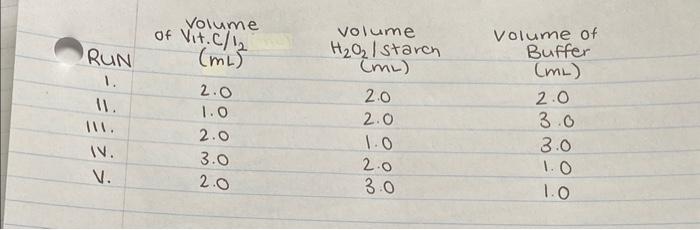 RUN Volume of Vit.C/I₂ (mL) Volume H₂O₂/starch (mL) Volume of Buffer (mL)
I. 2.0 2.0 2.0
II. 1.0 2.0 3.0
III. 2.0 1.0 3.0
IV. 3.0 2.0 1.0
V. 2.0 3.0 1.0